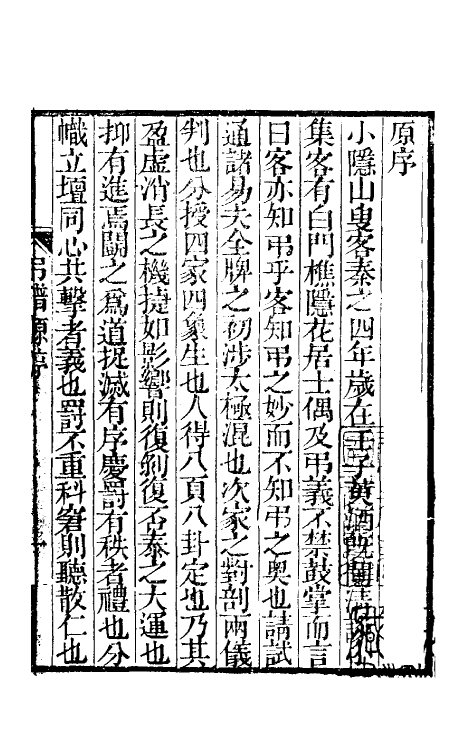 原序
小隱山叟客秦之四年歲在壬子黃酒既闌清
集客有白門樵隱花居士偶及弔義不禁鼓掌而言
曰客亦知弔乎客知弔之妙而不知弔之奧也請試
通諸易夫全牌之初渉太極混也次家之對剖兩儀
判也分授四家四象生也人得八頁八卦定也乃其
盈虛消長之機捷如影響則復剝復否泰之大運也
抑有進焉鬪之爲道捉滅有序慶罰有秩者禮也分
幟立壇同心共擊者義也罰不重科窘則聽散仁也
弔譜原序